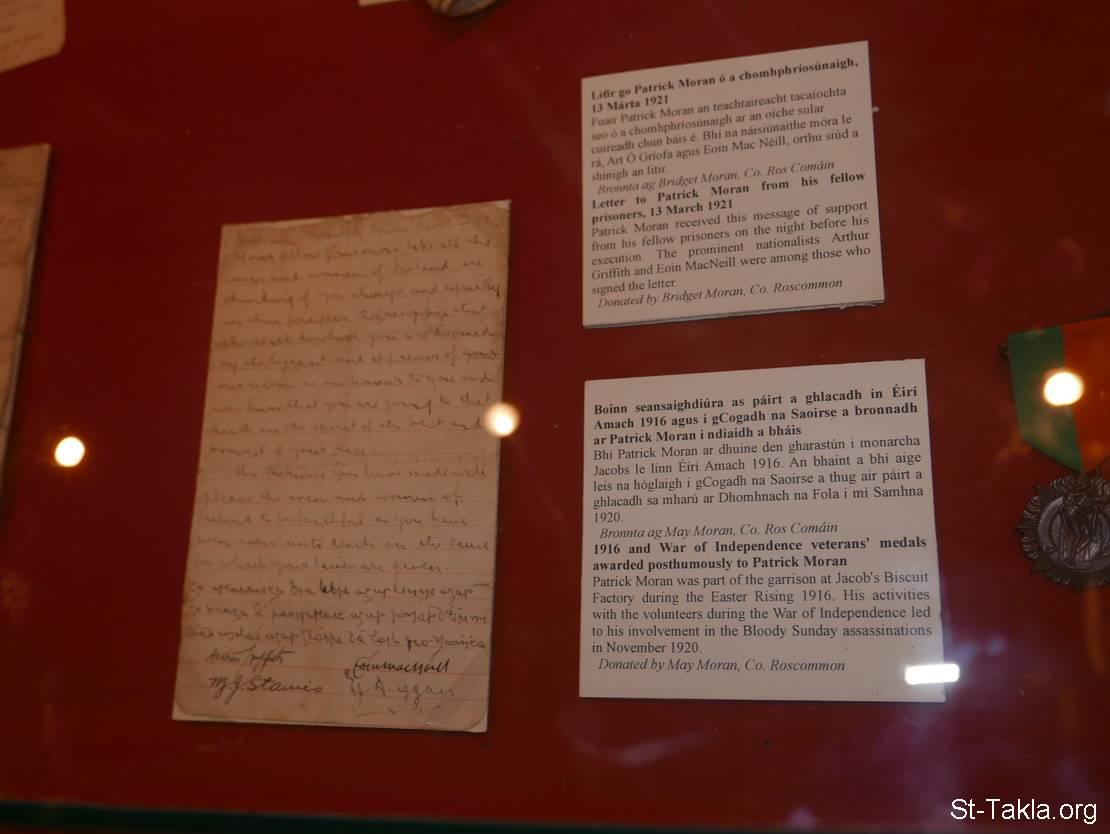 Your fellow prisoners like all the
men and women of Ireland are
thinking of you always and especially
in their prayers.
the death to which you are doomed
by the tyrant and oppressor of your
own nation is an honour to you and
we know that you are going to that
death in the spirit of the best and
bravest of your race.
The sacrifice you have made will
pledge the men and women of
Ireland to be faithful as you have
been even unto death in the cause
for which your lives are given.
Arthur Griffith Eoin MacNeill
M J Staines
Litir go Patrick Moran ó a chomhphríosúnaigh,
13 Márta 1921
Fuair Patrick Moran an teachtaireacht tacaíochta
seo ó a chomhphríosúnaigh ar an oíche sular
cuireadh chun báis é. Bhí na náisiúnaithe móra le
rá, Art Ó Gríofa agus Eoin Mac Néill, orthu siúd a
shínigh an litir.
Bronnta ag Bridget Moran, Co. Ros Comáin
Letter to Patrick Moran from his fellow
prisoners, 13 March 1921
Patrick Moran received this message of support
from his fellow prisoners on the night before his
execution. The prominent nationalists Arthur
Griffith and Eoin MacNeill were among those who
signed the letter.
Donated by Bridget Moran, Co. Roscommon
Boinn seansaighdiúra as páirt a ghlacadh in Éirí
Amach 1916 agus i gCogadh na Saoirse a bronnadh
ar Patrick Moran i ndiaidh a bháis
Bhí Patrick Moran ar dhuine den gharastún i monarcha
Jacobs le linn Éirí Amach 1916. An bhaint a bhí aige
leis na hóglaigh i gCogadh na Saoirse a thug air páirt a
ghlacadh sa mharú ar Dhomhnach na Fola i mí Samhna
1920.
Bronnta ag May Moran, Co. Ros Comáin
1916 and War of Independence veterans' medals
awarded posthumously to Patrick Moran
Patrick Moran was part of the garrison at Jacob's Biscuit
Factory during the Easter Rising 1916. His activities
with the volunteers during the War of Independence led
to his involvement in the Bloody Sunday assassinations
in November 1920.
Donated by May Moran, Co. Roscommon
St-Takla.org